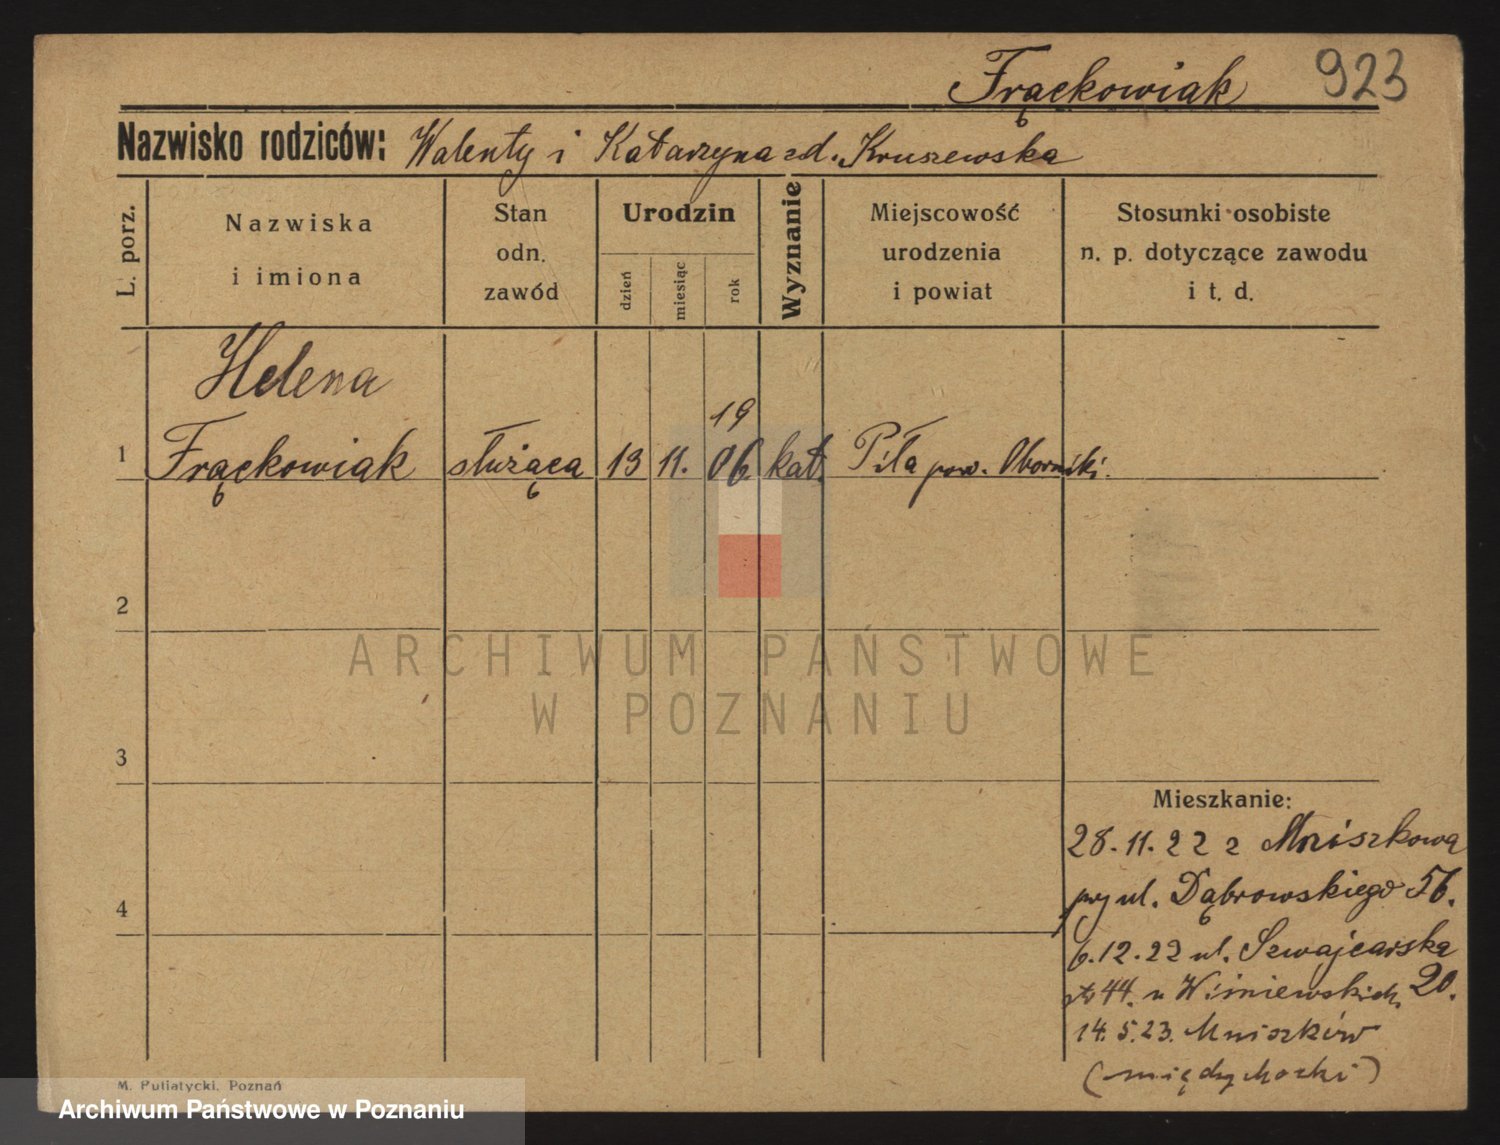 Frąckowiak 923
Nazwisko rodziców: Walenty i Katarzyna zd. Kruszewska
L. porz.
Nazwiska
i imiona
Stan
odn.
zawód
Urodzin
dzień
miesiąc
rok
Wyznanie
Miejscowość
urodzenia
i powiat
Stosunki osobiste
n. p. dotyczące zawodu
i t. d.
Helena
19
1 Frąckowiak służąca 13 11. 06 kat. Piła pow. Oborniki.
2
ARCHIWUM PAŃSTWOWE
W POZNANIU
3
Mieszkanie:
28.11.22 z Mniszkowa
przy ul. Dąbrowskiego 56.
4
6.12.22 ul. Szwajcarska
44. u Wiśniewskich 20.
14.5.23. Mniszków
(międzychodzki)
M. Puliatycki, Poznań
Archiwum Państwowe w Poznaniu